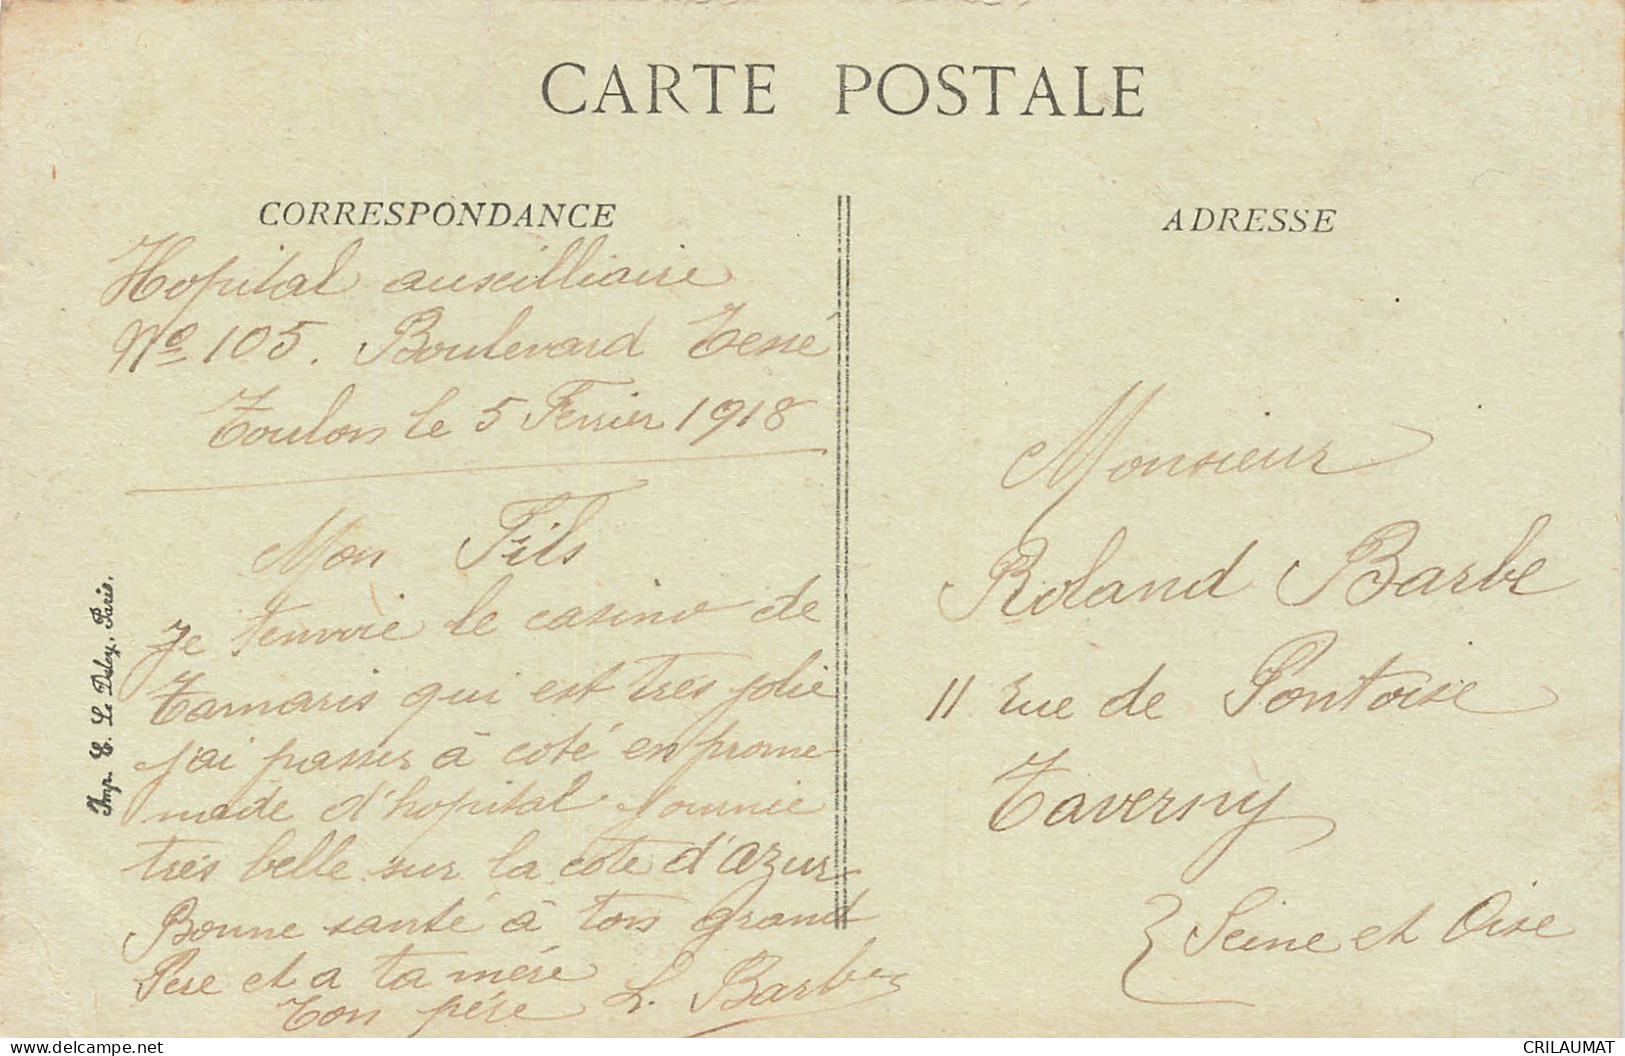 CARTE POSTALE
CORRESPONDANCE
Hopital auxcilliaire
No 105. Boulevard Tessé
Toulon le 5 Fevrier 1918
Mon Fils
Je t'envoie le casino de
Tamaris qui est très jolie
j'ai passer à coté en prome-
nade d'hopital Journée
très belle sur la cote d'azur
Bonne santé à ton grand
Pere et a ta mère
Ton père L. Barbe
Imp. E. Le Deley, Paris.
ADRESSE
Monsieur
Roland Barbe
11 rue de Pontoise
Taverny
Seine et Oise
CRILAUMAT